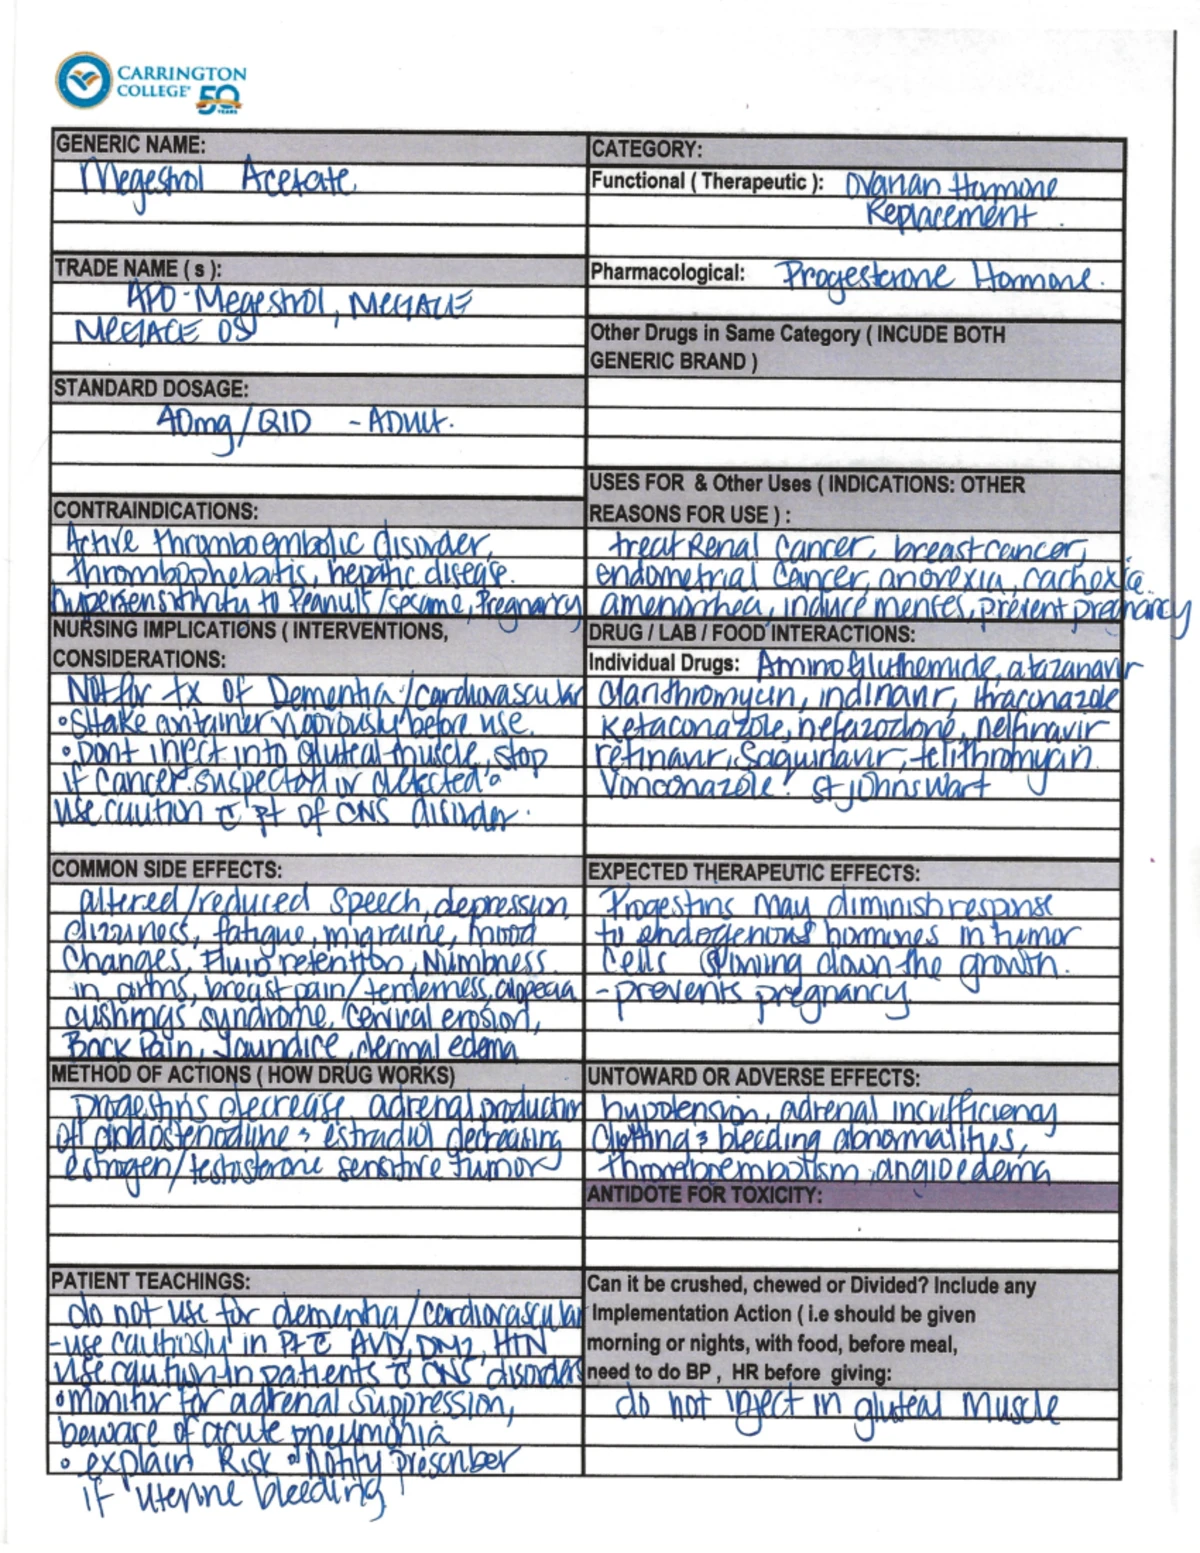 CARRINGTON
COLLEGE
50
YEARS
GENERIC NAME:
Megestrol Acetate
TRADE NAME ( s ):
APO-Megestrol, MEGACE
MEGACE OS
STANDARD DOSAGE:
40mg/QID - ADULT.
CONTRAINDICATIONS:
Active thromboembolic disorder,
thrombophebitis, hepatic disease.
hypersensitivity to Peanuts/sesame, Pregnancy
NURSING IMPLICATIONS ( INTERVENTIONS,
CONSIDERATIONS:
Not for tx of Dementia/cardiovascular
•Shake container vigorously before use.
•Dont inject into gluteal muscle, stop
if cancer suspected or detected
use caution c pt of CNS disorder.
COMMON SIDE EFFECTS:
altered/reduced speech, depression
dizziness, fatigue, migraine, mood
changes, Fluid retention, Numbness
in arms, breast pain/tenderness, alopecia
cushings syndrome, cervical erosion,
Back Pain, Jaundice, dermal edema
METHOD OF ACTIONS ( HOW DRUG WORKS)
progestins decrease adrenal production
of & estradiol decreasing
estrogen/testosterone sensitive tumor
PATIENT TEACHINGS:
do not use for dementia/cardiovascular
-use cautiously in Pt c DM2, HTN
use caution in patients c CNS disorders
•monitor for adrenal suppression,
beware of acute pneumonia
• explain Risk •notify prescriber
if uterine bleeding
CATEGORY:
Functional ( Therapeutic ): Ovarian Hormone
Replacement
Pharmacological: Progesterone Hormone.
Other Drugs in Same Category ( INCUDE BOTH
GENERIC BRAND )
USES FOR & Other Uses ( INDICATIONS: OTHER
REASONS FOR USE ) :
treat Renal cancer, breast cancer,
endometrial cancer, anorexia, cachexia.
amenorrhea, induce menses, prevent pregnancy
DRUG / LAB / FOOD INTERACTIONS:
Individual Drugs: Aminogluthemide, atazanavir
clarithromycin, indinavir, itraconazole
Ketaconazole, nefazodone, nelfinavir
retinavir, Saquinavir, telithromycin.
Voriconazole. St Johns Wart
EXPECTED THERAPEUTIC EFFECTS:
Progestins may diminish response
to endogenous hormones in tumor
cells slowing down the growth.
-prevents pregnancy
UNTOWARD OR ADVERSE EFFECTS:
hypotension, adrenal insufficiency
Clotting & bleeding abnormalities,
thromboembolism, angioedema
ANTIDOTE FOR TOXICITY:
Can it be crushed, chewed or Divided? Include any
Implementation Action ( i.e should be given
morning or nights, with food, before meal,
need to do BP , HR before giving:
do not inject in gluteal Muscle